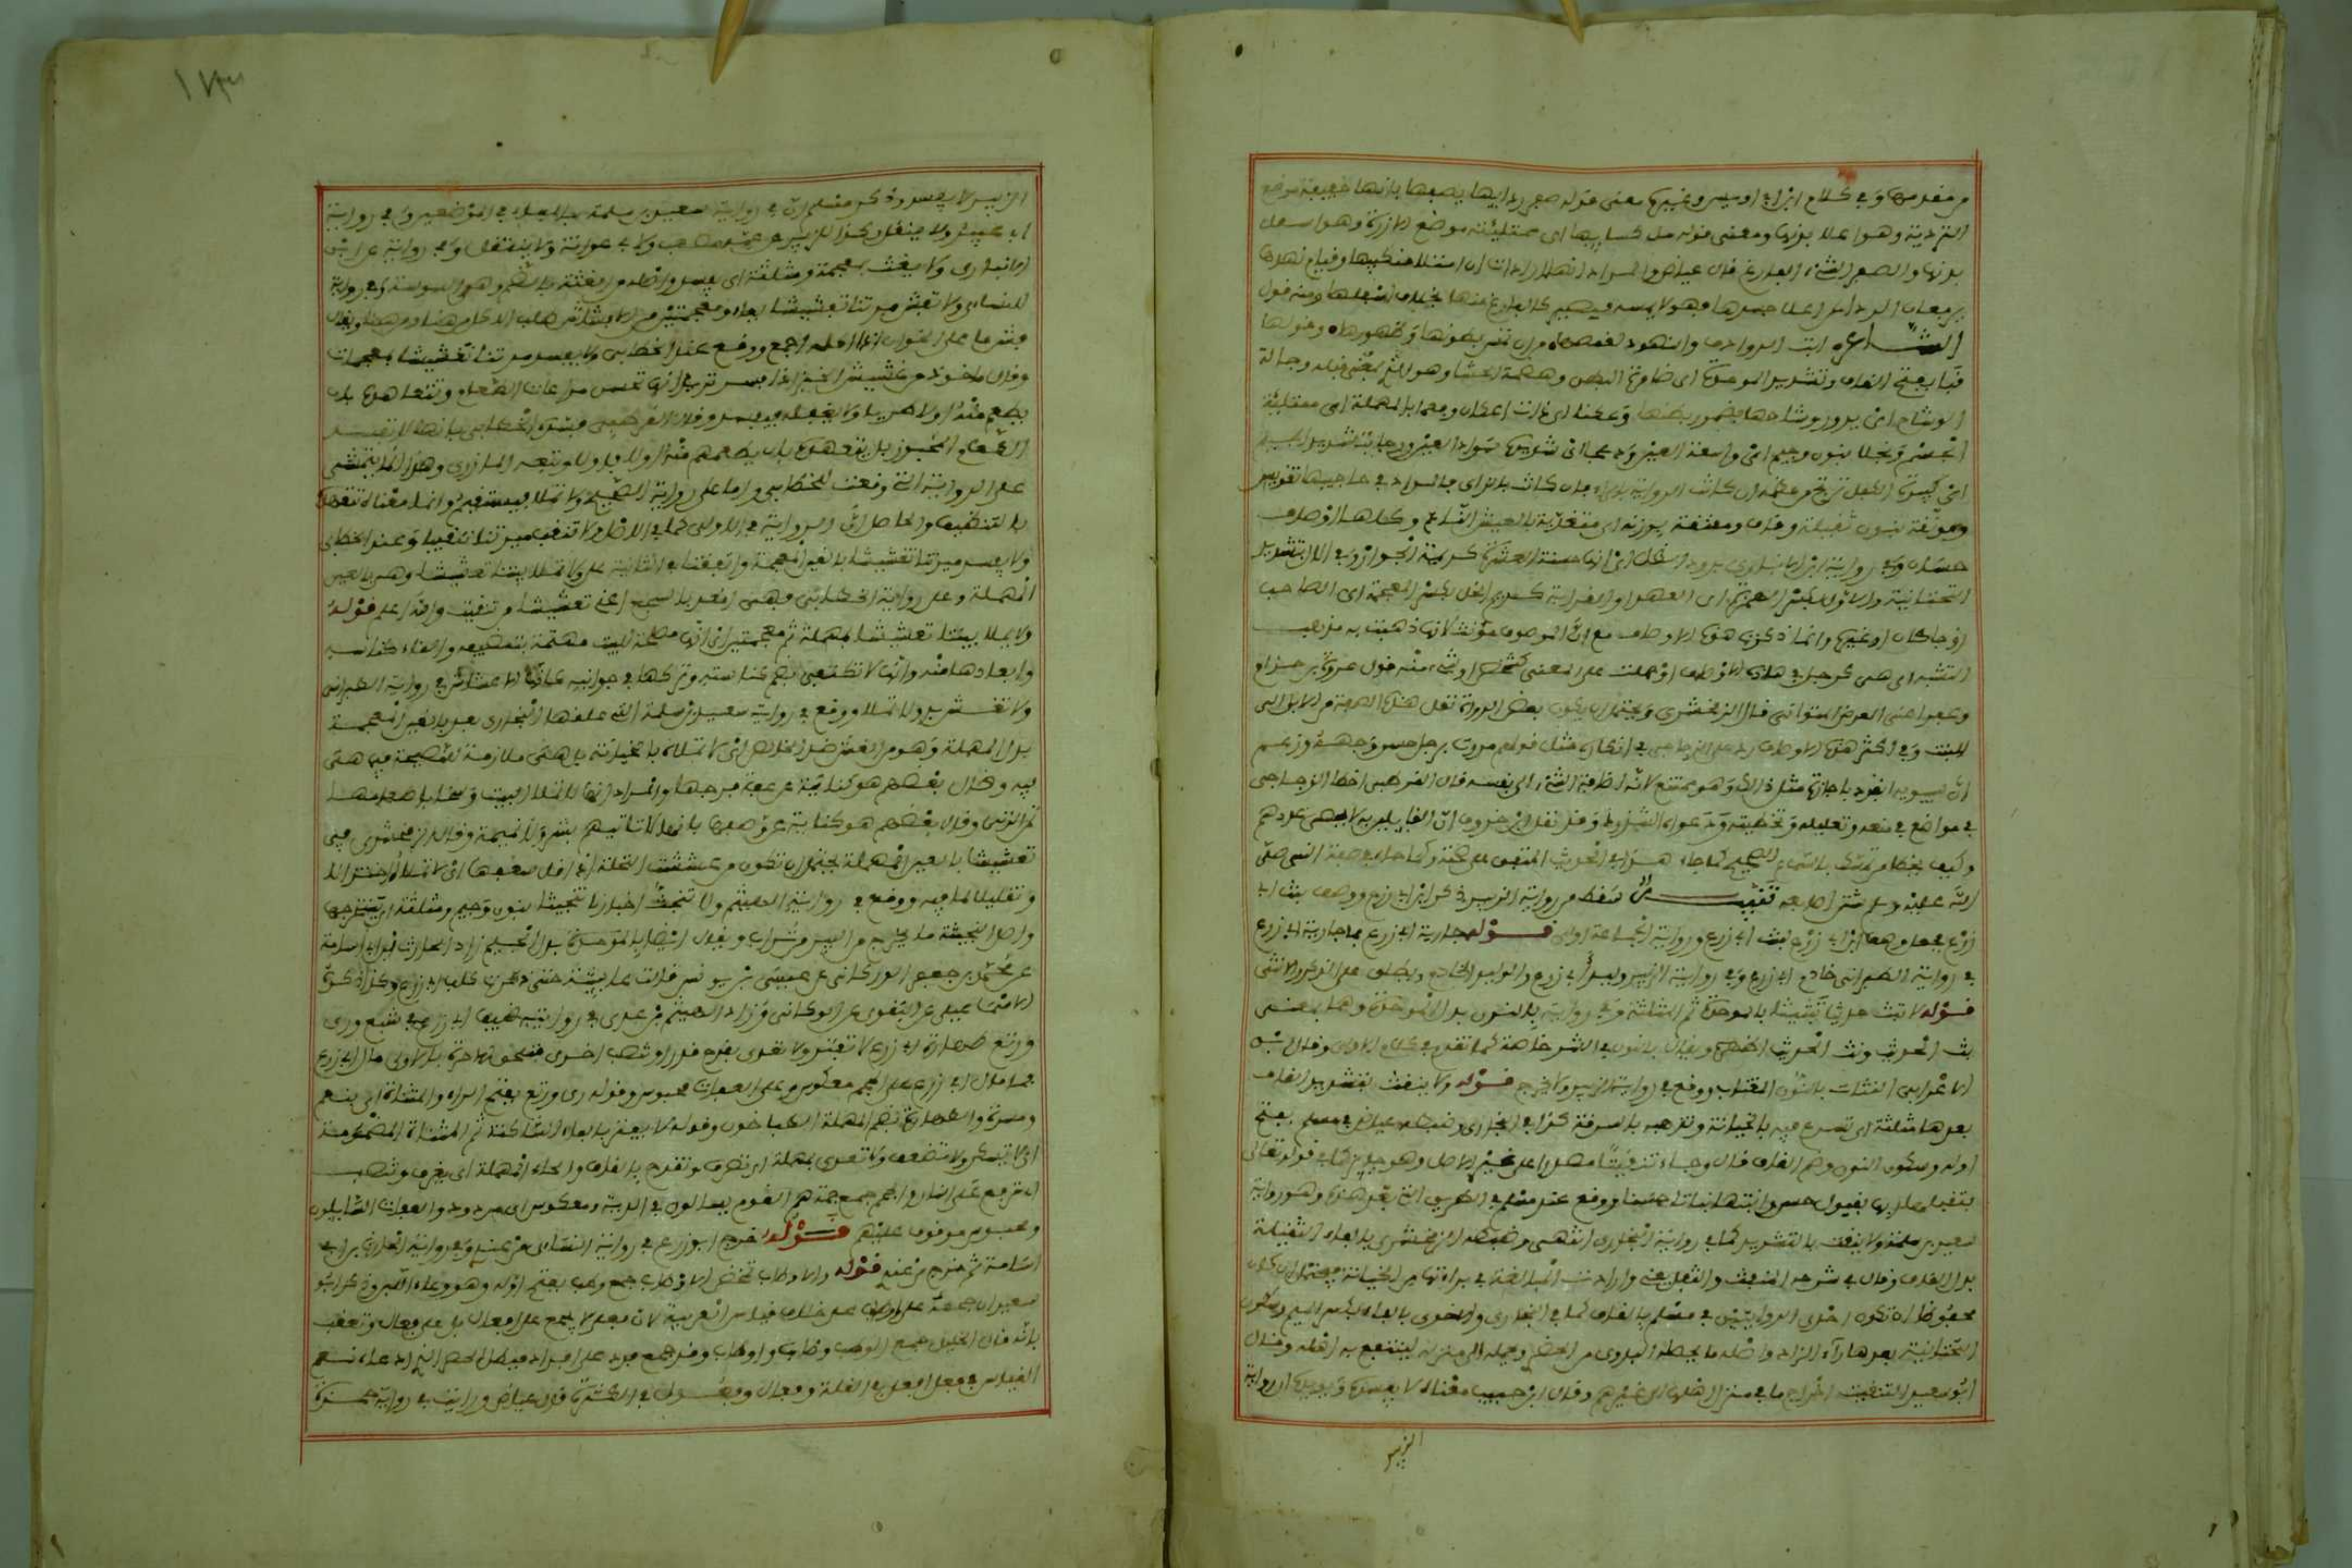 من مقدمها وفي كلام ابن ابي اويس وغيره معنى قوله صفر ردائها يصفها بانها خفيفة موضع
التردية وهو اعلا بدنها ومعنى قوله ملء كسائها اي ممتلئة موضع الازرة وهو اسفل
بدنها والصفر الشيء الفارغ قال عياض والمراد انه اراد ان امتلاء منكبيها وقيام نهديها
يرفعان الرداء عن اعلا جسدها فهو لا يمسه فيصير كالفارغ منها بخلاف اسفلها ومنه قول
الشاعر ابت الروادف والنهود لقمصها من ان تمس بطونها وظهورها وقولها
قبا بفتح القاف وتشديد الموحدة اي ضامرة البطن وهضمة الحشا وهو بمعنى قبله وجائلة
الوشاح اي يدور وشاحها لضمور بطنها وعكناء اي ذات اعكان وفعما بالمهملة اي ممتلئة
الجسم ونجلا بنون وجيم اي واسعة العين ودعجا اي شديدة سواد العين وزجا بتشديد الجيم
اي كبيرة الكفل ترتج من عظمه ان كانت الرواية بالراء فان كانت بالزاي فالمراد في حاجبيها تقويس
وموثقة بنون ثقيلة وقاف ومفنقة بوزنه اي مغذية بالعيش الناعم وكلها اوصاف
حسان وفي رواية ابن الانباري برود الظل اي انها حسنة العشرة كريمة الجوار وفي الال بتشديد
التحتانية والال بكسر الهمزة اي العهد او القرابة كريم الخل بكسر المعجمة اي الصاحب
زوجا كان او غيره وانما ذكرت هذه الاوصاف مع ان الموصوف مؤنث لانها ذهبت به مذهب
التشبيه اي هي كرجل في هذه الاوصاف او حملت على المعنى كشخص او شيء ومنه قول عروة بن حزام
وعفراء عني المعرض المتواني قال الزمخشري ويحتمل ان يكون بعض الرواة نقل هذه الصفة من الابن الى
البنت وفي اكثر هذه الاوصاف رد على الزجاجي في انكاره مثل قولهم مررت برجل حسن وجهه وزعم
ان سيبويه انفرد باجازة مثل ذلك وهو ممتنع لانه اضافة الشيء الى نفسه قال القرطبي اخطا الزجاجي
في مواضع في منعه وتعليله وتخطئته ودعواه الشذوذ وقد نقل ابن خروف ان القائلين به لا يحصى عددهم
وكيف يخطئ من تمسك بالسماع الصحيح كما جاء في هذا الحديث المتفق على صحته وكما جاء في صفة النبي صلى
الله عليه وسلم شثن اصابعه تنبيه سقط من رواية الزبير ذكر ابن ابي زرع ووصف بنت ابي
زرع فجعل وصف ابن ابي زرع لبنت ابي زرع ورواية الجماعة اولى قوله جارية ابي زرع فما جارية ابي زرع
في رواية الطبراني خادم ابي زرع وفي رواية الزبير وليد ابي زرع والوليد الخادم ويطلق على الذكر والانثى
قوله لا تبث حديثنا تبثيثا بالموحدة ثم المثلثة وفي رواية بالنون بدل الموحدة وهما بمعنى
بث الحديث ونث الحديث اظهره ويقال بالنون في الشر خاصة كما تقدم في كلام الاولى وقال ابن
الاعرابي النثاث بالنون المغتاب ووقع في رواية الزبير ولا تخرج قوله ولا تنقث بتشديد القاف
بعدها مثلثة اي تسرع فيه بالخيانة وتذهبه بالسرقة كذا في البخاري وضبطه عياض في مسلم بفتح
اوله وسكون النون وضم القاف قال وجاء تنقيثا مصدرا على غير الاصل وهو جايز كما في قوله تعالى
فتقبلها ربها بقبول حسن وانبتها نباتا حسنا ووقع عند مسلم في الطريق التي بعد هذه وهي رواية
سعيد بن سلمة ولا تنقث بالتشديد كما في رواية البخاري انتهى وضبطه الزمخشري بالفاء الثقيلة
بدل القاف وقال في شرحه النفث والتفل بمعنى وارادت المبالغة في براءتها من الخيانة فيحتمل ان كان
محفوظا ان تكون احدى الروايتين في مسلم بالقاف كما في البخاري والاخرى بالفاء والميرة بكسر الميم وسكون
التحتانية بعدها راء الزاد واصله ما يحصله البدوي من الحضر ويحمله الى منزله لينتفع به اهله وقال
ابو سعيد التنقيث اخراج ما في منزل اهلها الى غيرهم وقال ابن حبيب معناه لا تفسده ويؤيده ان رواية
الزبير
الزبير لا تفسد وذكر مسلم ان في رواية سعيد بن سلمة بالفاء في الموضعين وفي رواية
ابي عبيد ولا تنقل وكذا للزبير عن عمه مصعب ولابي عوانة ولا تنتقل وفي رواية عن ابن
الانباري ولا تغث بمعجمة ومثلثة اي تفسد واصله من الغثة بالضم وهي الوسوسة وفي رواية
للنسائي ولا تفش ميرتنا تفشيشا بفاء ومعجمتين من الافشاش طلب الاكل من هنا ومن هنا ويقال
فش ما على الخوان اذا اكله اجمع ووقع عند الخطابي ولا تفسد ميرتنا تغشيشا بمعجمات
وقال ماخوذ من غشيش الخبز اذا فسد تريد انها تحسن مراعاة الطعام وتتعاهده بان
تطعم منه اولا طريا ولا تغفله فيفسد وقال القرطبي فسره الخطابي بانها لا تفسد
الطعام المخبوز بل تتعهده بان تطعمهم منه اولا فاولا وتبعه المازري وهذا انما يتمشى
على الرواية التي وقعت للخطابي واما على رواية الصحيح ولا تملا فلا يستقيم وانما معناه تتعهده
بالتنظيف والحاصل ان الرواية في الاولى كما في الاصل ولا تنقث ميرتنا تنقيثا وعند الخطابي
ولا تفسد ميرتنا تغشيشا بالغين المعجمة واتفقتا في الثانية على ولا تملا بيتنا تعشيشا وهي بالعين
المهملة وعلى رواية الخطابي فهي اقعد بالسجع اعني تعشيشا من تنقيث والله اعلم قوله
ولا تملا بيتنا تعشيشا بالمهملة ثم معجمتين اي انها مصلحة للبيت مهتمة بتنظيفه والقاء كناسته
وابعادها منه وانها لا تكتفي بقم كناسته وتركها في جوانبه كانها الاعشاش في رواية الطبراني
ولا تغش بدل ولا تملا ووقع في رواية سعيد بن سلمة التي علقها البخاري بعد بالغين المعجمة
بدل المهملة وهو من الغش ضد الخالص اي لا تملاه بالخيانة بل هي ملازمة للنصيحة فيما هي
فيه وقال بعضهم هو كناية عن عفة فرجها والمراد انها لا تملا البيت وسخا باطفالها
من الزنى وقال بعضهم هو كناية عن وصفها بانها لا تاتيهم بشر ولا نميمة وقال الزمخشري في
تعشيشا بالعين المهملة يحتمل ان تكون من عششت النخلة اذا قل سعفها اي لا تملاه اختزالا
وتقليلا لما فيه ووقع في رواية الهيثم ولا تنجث اخبارنا تنجيثا بنون وجيم ومثلثة اي تستخرجها
واصل النجيثة ما يخرج من البير من تراب ويقال ايضا بالموحدة بدل الجيم زاد الحارث بن ابي اسامة
عن محمد بن جعفر الوركاني عن عيسى بن يونس قالت عائشة حتى ذكرت كلب ابي زرع وكذا ذكره
الاسماعيلي عن البغوي عن الوركاني وزاد الهيثم بن عدي في روايته ضيف ابي زرع في شبع وري
ورتع طهاة ابي زرع لا تفتر ولا تعدى تقدح قدرا وتنصب اخرى فتلحق الاخرة بالاولى مال ابي زرع
فما مال ابي زرع على الجمم معكوس وعلى العفاة محبوس وقوله ري ورتع بفتح الراء والمثناة اي تنعم
ومسرة والطهاة بضم المهملة الطباخون وقوله لا تفتر بالفاء الساكنة ثم المثناة المضمومة
اي لا تسكن ولا تضعف ولا تعدى بمهملة اي تصرف وتقدح بالقاف والحاء المهملة اي تغرف وتنصب
اي ترفع على النار والجمم جمع جمة هم القوم يسالون في الدية ومعكوس اي مردود والعفاة السائلون
ومحبوس موقوف عليهم قوله خرج ابو زرع في رواية النسائي من عندي وفي رواية الحارث بن ابي
اسامة ثم خرج من عندي قوله والاوطاب تمخض الاوطاب جمع وطب بفتح اوله وهو وعاء اللبن وذكر ابو
سعيد ان جمعه على اوطاب على خلاف قياس العربية لان فعلا لا يجمع على افعال بل على فعال وتعقب
بانه قال الخليل جمع الوطب وطاب واوطاب وقد جمع فرد على افراد فبطل الحصر الذي ادعاه نعم
القياس في فعل افعل في القلة وفعال وفعول في الكثرة قال عياض ورايت في رواية حمزة